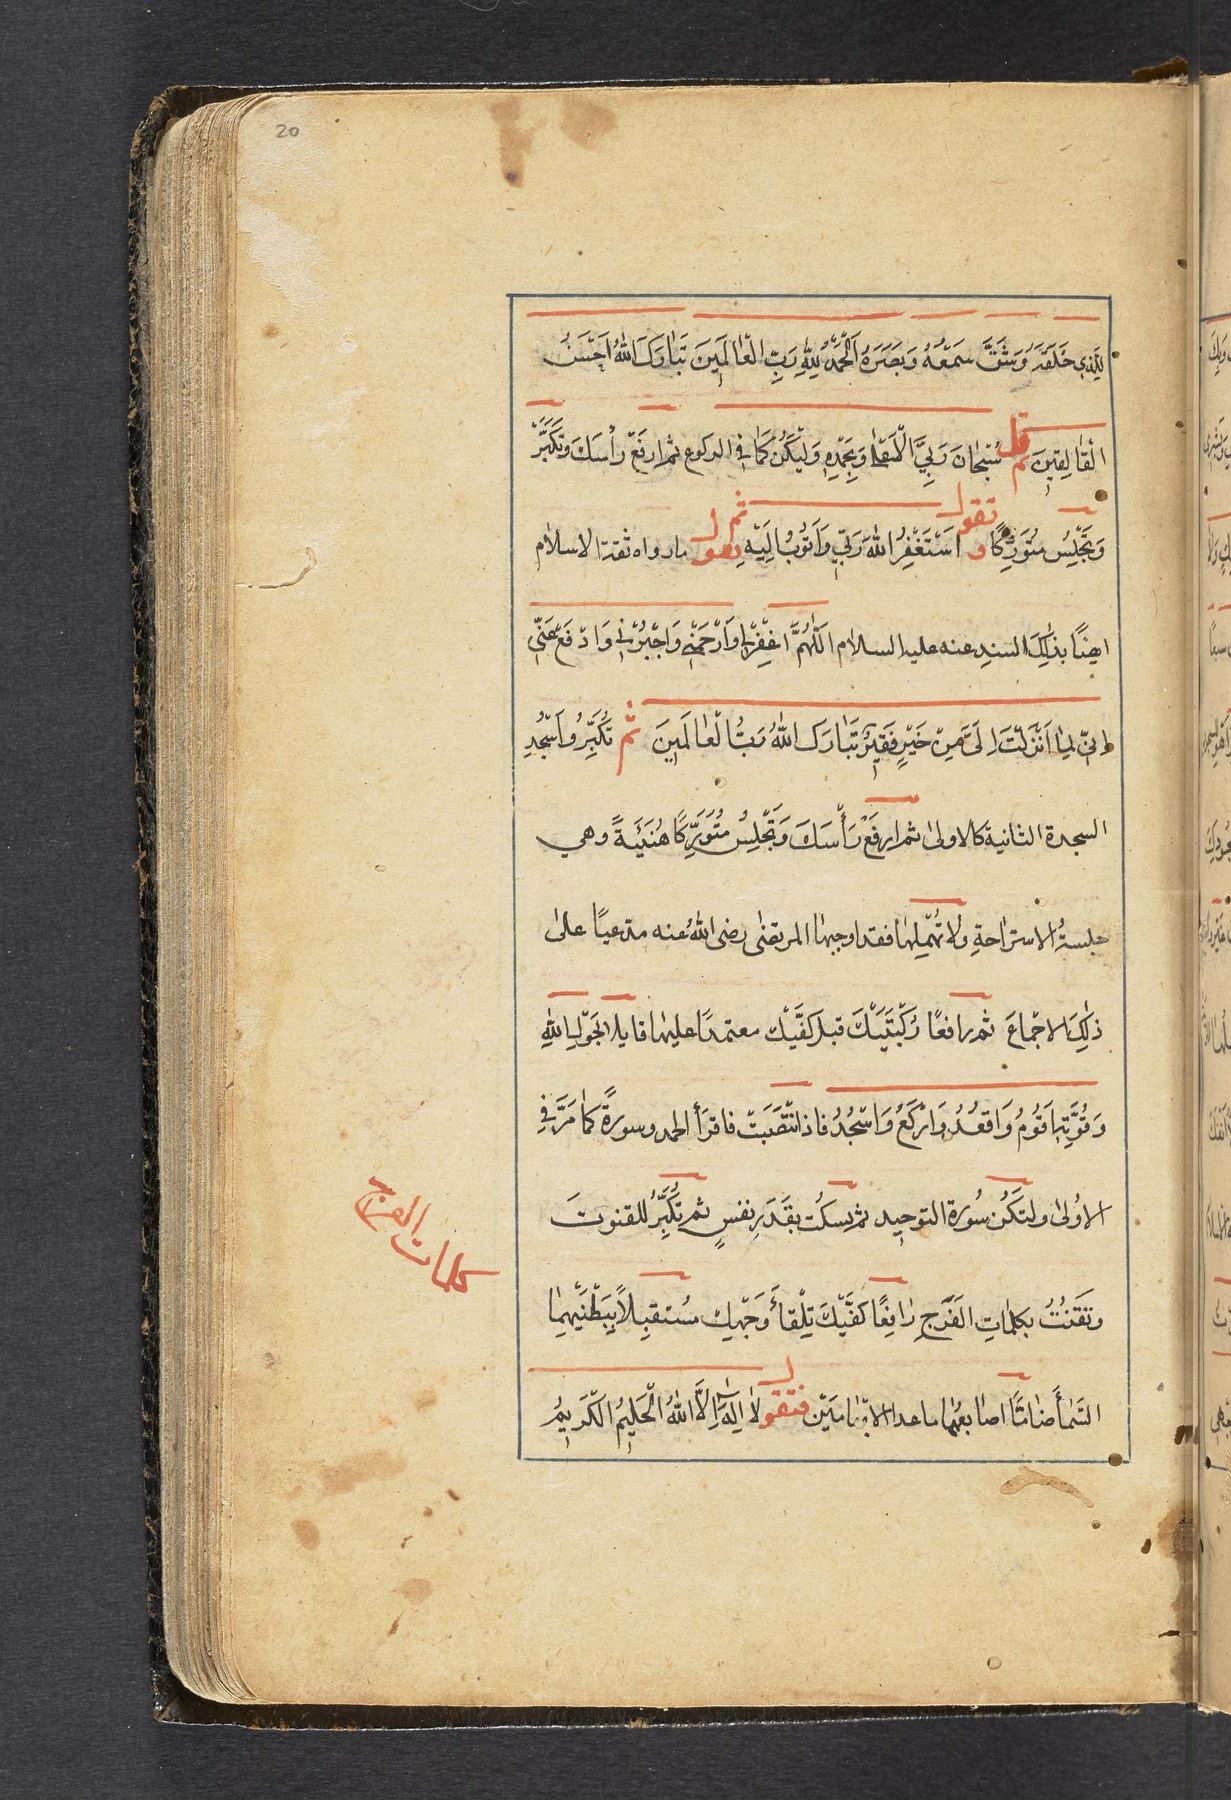 20
لِلَّذِي خَلَقَهُ وَشَقَّ سَمْعَهُ وَبَصَرَهُ اَلْحَمْدُ لِلّٰهِ رَبِّ الْعٰالَمِينَ تَبٰارَكَ اللّٰهُ اَحْسَنُ
الْخٰالِقِينَ ثم قل سُبْحٰانَ رَبِّيَ الْاَعْلىٰ وَبِحَمْدِهِ وَلْيَكُنْ كَمٰا في الركوع ثم ارفَعْ رأسَكَ وَتُكَبِّرُ
وَتَجْلِسُ مُتَوَرِّكًا و تقول اَسْتَغْفِرُ اللّٰهَ رَبّي وَاَتُوبُ اِلَيْهِ ثم يقول مارواه ثقة الاسلام
ايضًا بذٰلِكَ السندِ عنه عليه السلام اَللّٰهُمَّ اغْفِرْلي وَارْحَمْني وَاجْبُرْني وَادْفَعْ عَنّي
اِنّي لِمٰا اَنْزَلْتَ اِلَىَّ مِنْ خَيْرٍ فَقيرٌ تَبٰارَكَ اللّٰهُ رَبُّ الْعٰالَمينَ ثم تُكَبِّرُ وَاسْجُدِ
السجدة الثانية كالاولىٰ ثم ارفَعْ رَأْسَكَ وَتَجْلِسُ مُتَوَرِّكًا هُنَيْئَةً وهي
جلسةُ الاستراحةِ ولا تُهْمِلها فقد اوجبها المرتضىٰ رضى اللّٰهُ عنه مدعيًا علىٰ
ذٰلِكَ الاجْمٰاعَ ثم رافعًا رُكْبَتَيْكَ قبل كفَّيْك معتمدًا عليهما قايلا بِحَوْلِ اللّٰهِ
وَقُوَّتِهِ اَقُومُ وَاَقْعُدُ وَاَرْكَعُ وَاَسْجُدُ فاذا انْتَصَبْتَ فاقرَأ الحمد وسورةً كمٰا مَرَّ فِي
الاُولىٰ ولتَكُن سُورة التوحيد ثم يسكُت بِقَدَرِ نفسٍ ثم تُكَبِّرُ للقنوت
وتَقْنُتُ بكلماتِ الفَرَجِ رٰافِعًا كفَّيْكَ تِلْقٰاءَ وَجْهِك مُستقبِلاً بِبَطْنَيْهِمٰا
السَّمٰاءَ ضامًّا اصٰابعَهُما ماعدا الابْهٰامَيْن فتقول لا اِلٰهَ اِلَّا اللّٰهُ الْحَليمُ الْكَريمُ
كلمات الفرج